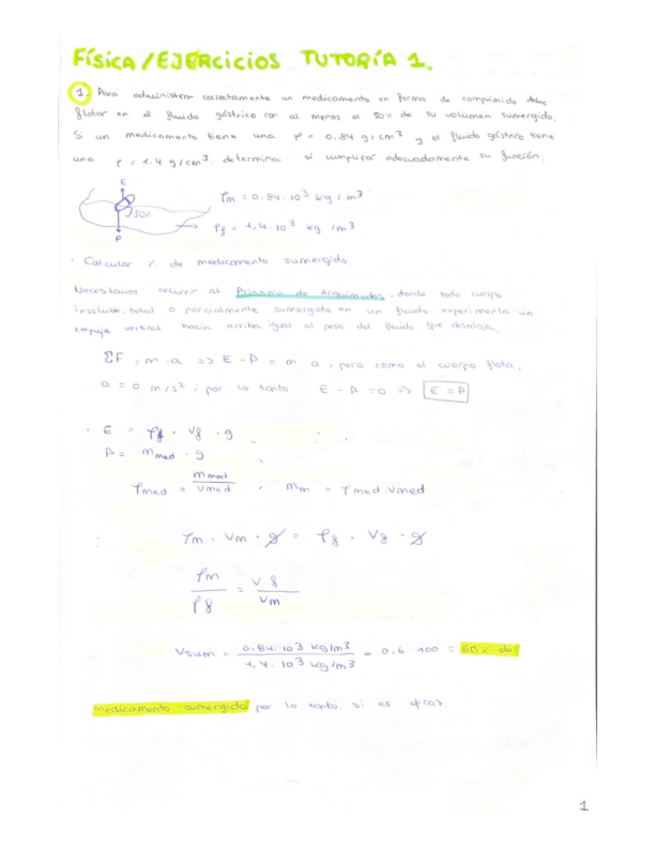 FÍSICA / EJERCICIOS TUTORÍA 1.
1. Para administrar correctamente un medicamento en forma de comprimido debe
flotar en el fluido gástrico con al menos el 50% de su volumen sumergido.
Si un medicamento tiene una ρ = 0,84 g/cm³ y el fluido gástrico tiene
una ρ = 1.4 g/cm³, determina si cumplirá adecuadamente su función.
E
50%
P
ρm = 0,84·10³ kg/m³
ρf = 1,4·10³ kg/m³
· Calcular % de medicamento sumergido.
Necesitamos recurrir al Principio de Arquímedes, donde todo cuerpo
insoluble, total o parcialmente sumergido en un fluido, experimenta un
empuje vertical hacia arriba igual al peso del fluido que desaloja.
ΣF = m · a => E - P = m · a, pero como el cuerpo flota,
a = 0 m/s², por lo tanto E - P = 0 => E = P
· E = ρf · Vf · g
P = mmed · g
ρmed = mmed / Vmed , mm = ρmed · Vmed
ρm · Vm · g = ρf · Vf · g
ρm / ρf = Vf / Vm
Vsum = 0,84·10³ kg/m³ / 1,4·10³ kg/m³ = 0,6 · 100 = 60% de
medicamento sumergido por lo tanto, si es eficaz.
1